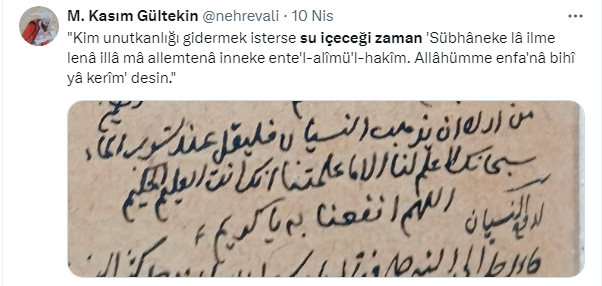 M. Kasım Gültekin @nehrevali · 10 Nis
"Kim unutkanlığı gidermek isterse su içeceği zaman 'Sübhâneke lâ ilme
lenâ illâ mâ allemtenâ inneke ente'l-alîmü'l-hakîm. Allâhümme enfa'nâ bihî
yâ kerîm' desin."
من اراد ان يذهب النسيان فليقل عند شرب الماء
سبحانك لا علم لنا الا ما علمتنا انك انت العليم الحكيم
اللهم انفعنا به يا كريم